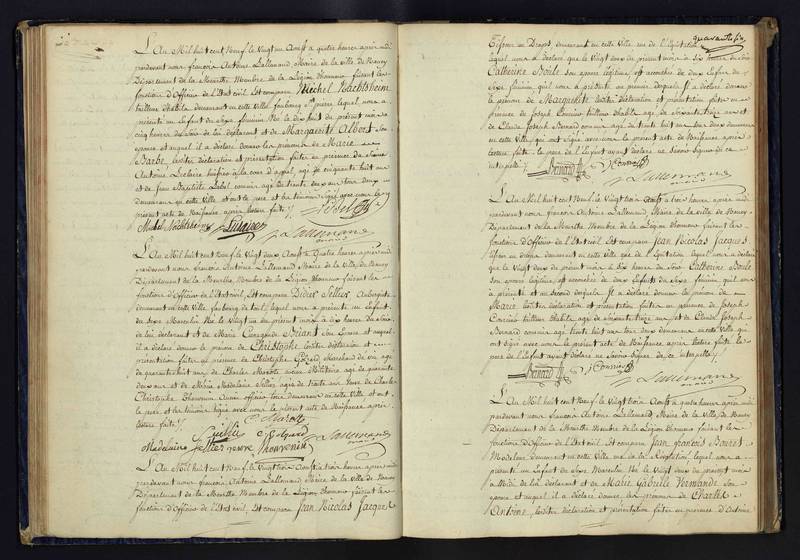 L'An Mil huit cent Neuf, le Vingt un Aoust a quatre heures après midi
pardevant nous françois Antoine Lallemand Maire de la ville de Nancy
Département de la Meurthe Membre de la Légion d'honneur faisant les
fonctions d'Officier de l'Etat civil, Est comparu Michel Nachtsheim
tailleur d'habits demeurant en cette Ville, faubourg St pierre, lequel nous a
présenté un Enfant du Sexe féminin Né le dix huit du présent mois à
cinq heures du soir de lui déclarant et de Marguerite Albert son
épouse et auquel il a déclaré donner les prénoms de Marie
Barbe lesdites déclaration et présentation faites en présence de
Antoine Leclaire huissier à la cour d'appel, agé de cinquante huit ans
et de Jean Baptiste Lebel commis agé de trente deux ans tous deux
demeurans en cette Ville et ont le père et les témoins signé avec nous le
présent acte de Naissance après lecture faite
Michel Nachtsheim Lallemand
L'An Mil huit cent Neuf le Vingt deux Aoust à Quatre heures après midi
pardevant nous françois Antoine Lallemand Maire de la Ville de Nancy
Département de la Meurthe, Membre de la Légion d'honneur faisant les
fonctions d'Officier de l'Etat civil, Est comparu Didier Sellier Aubergiste
demeurant en cette Ville, faubourg de toul, lequel nous a présenté un Enfant
du Sexe Masculin Né le Vingt un du présent mois à dix heures du soir
de lui déclarant et de Marie Cunegonde Briant son Epouse et auquel
il a déclaré donner le prénom de Christophe lesdites déclaration et
présentation faites en présence de Christophe Gérard Marchand de vin agé
de quarante huit ans, de Charles Marotte ancien Militaire agé de quarante
deux ans et de Marie Madelaine Sellier agée de trente ans Veuve de Charles
Christophe Thouvenin tous demeurans en cette Ville et ont
le père, et les témoins signé avec nous le présent acte de Naissance après
lecture faite
C Marotte
Sellier C Gérard
Madelaine Sellier veuve thouvenin Lallemand
L'An Mil huit cent Neuf le Vingt trois Aoust à trois heures après midi
pardevant nous françois Antoine Lallemand Maire de la Ville de Nancy
Département de la Meurthe Membre de la Légion d'honneur faisant les
fonctions d'Officier de l'Etat civil, Est comparu Jean Nicolas Jacques
Tisseur en Draps, demeurant en cette Ville, rue de l'Equitation
lequel nous a déclaré que le Vingt deux du présent mois à six heures du soir
Catherine Boule son épouse légitime est accouchée de deux Enfans du
Sexe féminin, qu'il nous a présenté au premier desquels il a déclaré donner
le prénom de Marguerite lesdites déclaration et présentation faites en
présence de Joseph tailleur d'habits agé de soixante trois ans et
de Claude Joseph Bernard commis agé de trente huit ans tous deux demeurans
en cette Ville, qui ont signé avec nous le présent acte de Naissance après
lecture faite, le père de l'Enfant ayant déclaré ne savoir signer de ce
interpellé
Bernard Lallemand
L'An Mil huit cent Neuf, le Vingt trois Aoust à trois heures après midi
pardevant nous françois Antoine Lallemand Maire de la ville de Nancy
Département de la Meurthe Membre de la Légion d'honneur faisant les
fonctions d'Officier de l'Etat civil Est comparu Jean Nicolas Jacques
Tisseur en draps demeurant en cette Ville rue de l'Equitation lequel nous a déclaré
que le Vingt deux du présent mois à heures du soir Catherine Boule
son épouse légitime est accouchée de deux Enfans du Sexe féminin, qu'il nous
a présenté et au second desquels il a déclaré donner le prénom de
Marie lesdites déclaration et présentation faites en présence de Joseph
tailleur d'habits, agé de soixante trois ans, et de Claude Joseph
Bernard commis agé de trente huit ans tous deux demeurans en cette Ville qui
ont signé avec nous le présent acte de Naissance après lecture faite le
père de l'Enfant ayant déclaré ne savoir signer de ce interpellé
Bernard Lallemand
L'An Mil huit cent Neuf le Vingt trois Aoust à quatre heures après midi
pardevant nous françois Antoine Lallemand Maire de la Ville de Nancy
Département de la Meurthe Membre de la Légion d'honneur faisant les
fonctions d'Officier de l'Etat civil, Est comparu Jean francois Bouret
demeurant en cette Ville rue de la lequel nous a
présenté un Enfant du Sexe Masculin Né le Vingt deux du présent mois
à Midi de lui déclarant et de Marie Gabrielle Vermande son
épouse et auquel il a déclaré donner les prénoms de Charles
Antoine, lesdites déclaration et présentation faites en présence d'Antoine